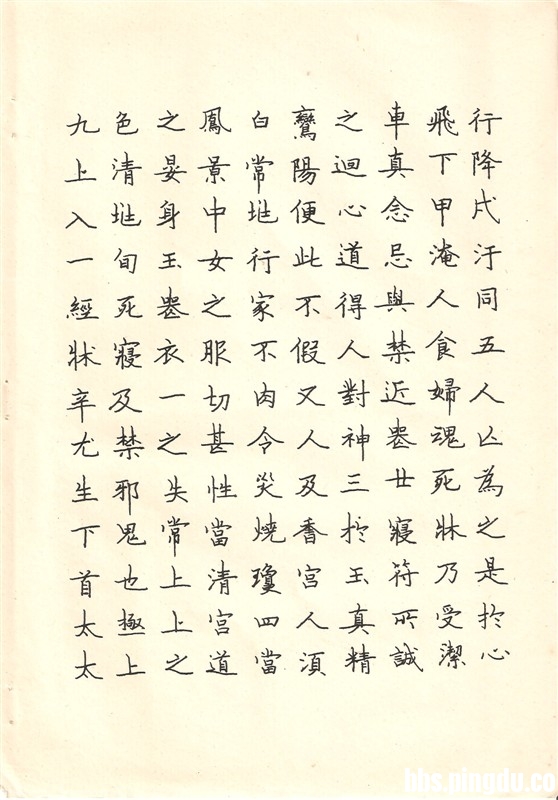 行降戌汙同五人亾為之是於心
飛下甲淹人食婦魂死牀乃受潔
車真念忌與禁近喪世寢符所誠
之迴心道得人對神三於玉真精
鸞陽便此不假又人及香宮人須
白常地行家不肉令災燒瓊四當
鳳景中女之服切甚性當清宮道
之晏身玉喪衣一之失常上上之
色清地旬死寢及禁邪鬼也極上
九上入一經牀辛尤生下首太太
bbs.pingdu.co